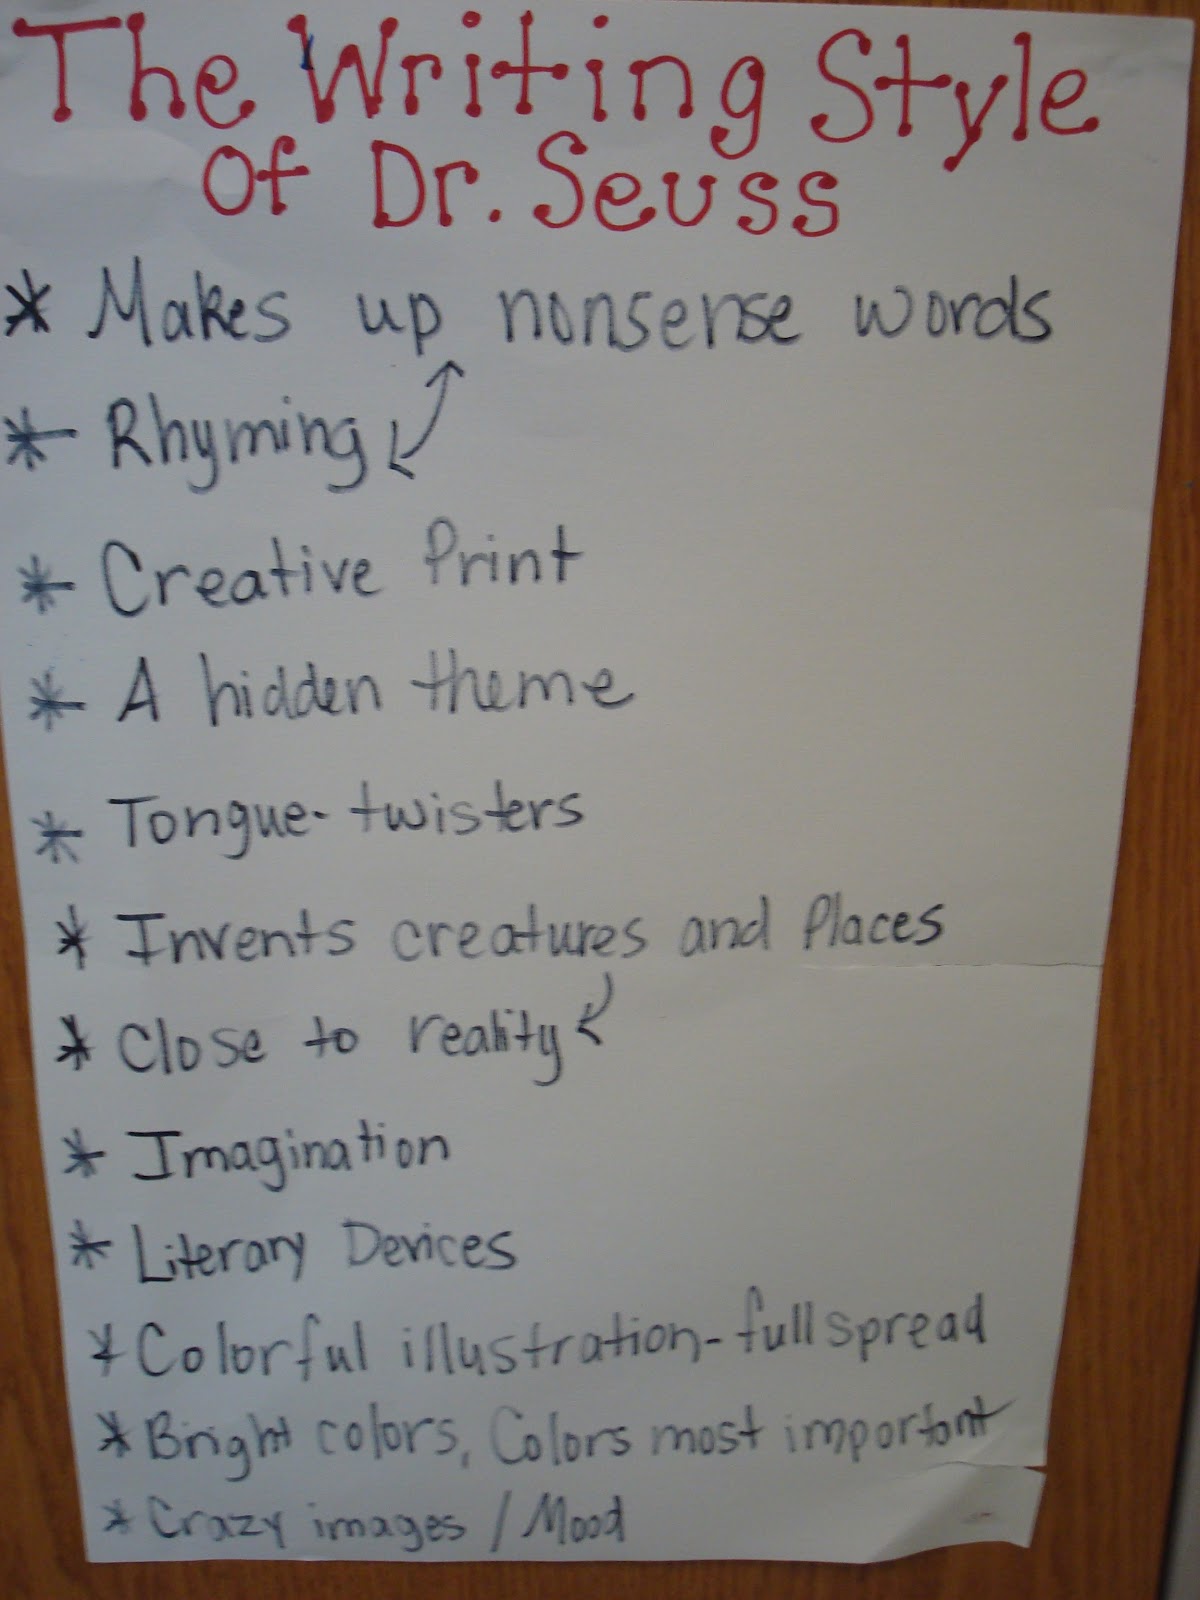 The Writing Style
Of Dr. Seuss
* Makes up nonsense words
* Rhyming
* Creative Print
* A hidden theme
* Tongue-twisters
* Invents creatures and Places
* Close to reality
* Imagination
* Literary Devices
* Colorful illustration-full spread
* Bright colors, Colors most important
* Crazy images / Mood